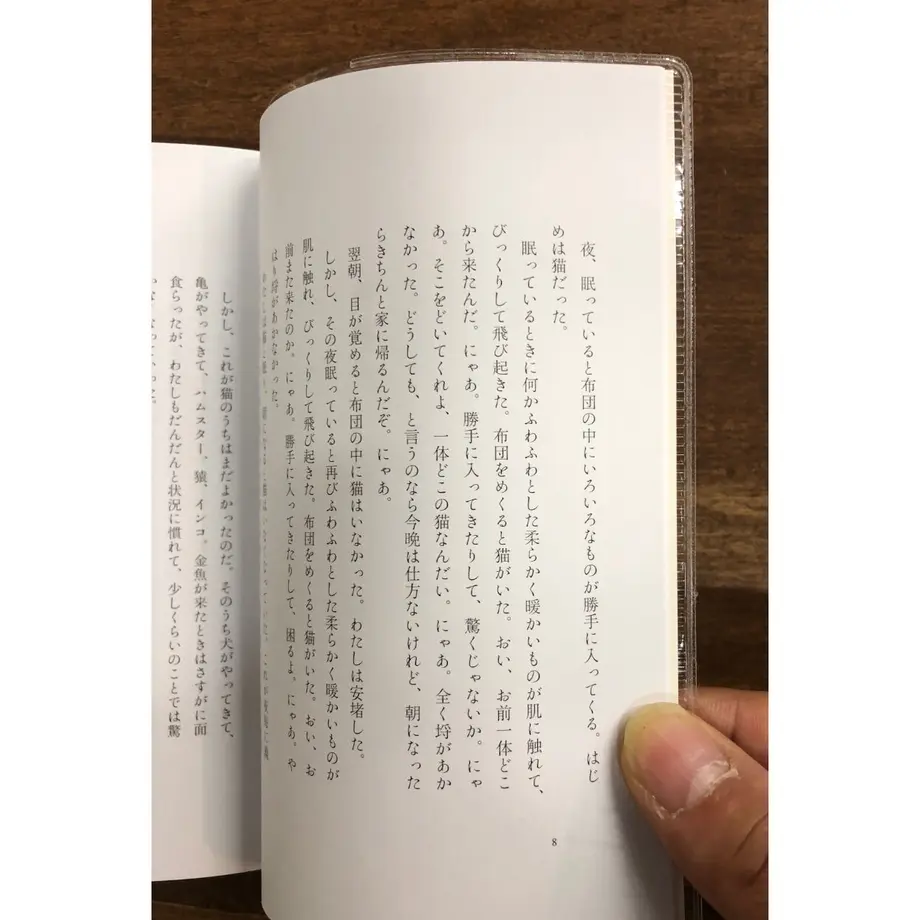 夜、眠っていると布団の中にいろいろなものが勝手に入ってくる。はじ
めは猫だった。
眠っているときに何かふわふわとした柔らかく暖かいものが肌に触れて、
びっくりして飛び起きた。布団をめくると猫がいた。おい、お前一体どこ
から来たんだ。にゃあ。勝手に入ってきたりして、驚くじゃないか。にゃ
あ。そこをどいてくれよ、一体どこの猫なんだい。にゃあ。全く埒があか
なかった。どうしても、と言うのなら今晩は仕方ないけれど、朝になった
らきちんと家に帰るんだぞ。にゃあ。
翌朝、目が覚めると布団の中に猫はいなかった。わたしは安堵した。
しかし、その夜眠っていると再びふわふわとした柔らかく暖かいものが
肌に触れ、びっくりして飛び起きた。布団をめくると猫がいた。おい、お
前また来たのか。にゃあ。勝手に入ってきたりして、困るよ。にゃあ。や
はり埒があかなかった。
8
しかし、これが猫のうちはまだよかったのだ。そのうち犬がやってきて、
亀がやってきて、ハムスター、猿、インコ。金魚が来たときはさすがに面
食らったが、わたしもだんだんと状況に慣れて、少しくらいのことでは驚